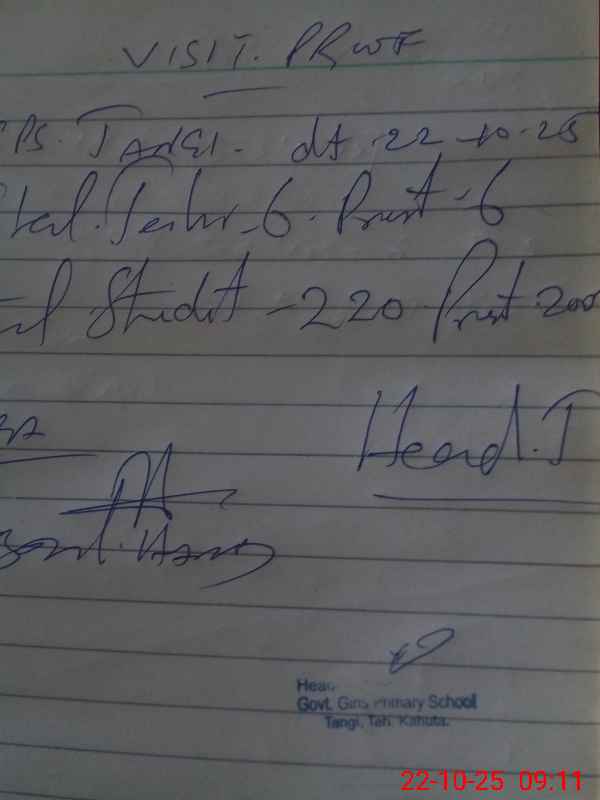 VISIT. PROOF
PS. TANGI. dt 22-10-25
Total. Teacher-6. Present-6
Student-220 Present.200
Head.T
Head
Govt. Girls Primary School
Tangi, Teh. Kahuta.
22-10-25 09.11